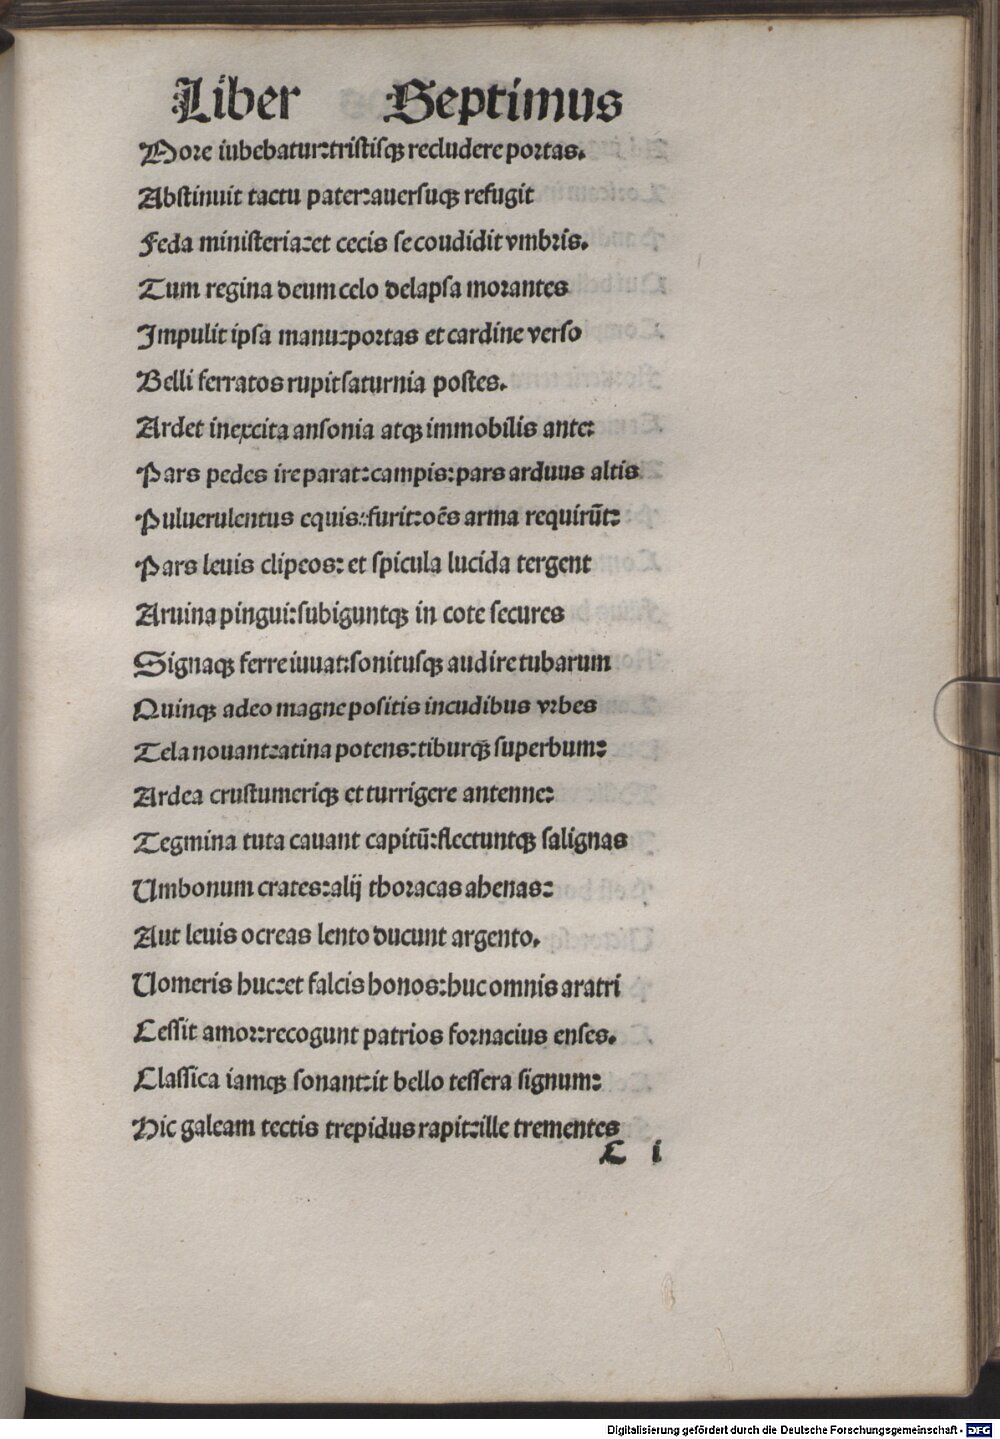 Liber Septimus
More iubebatur:tristisqꝫ recludere portas.
Abstinuit tactu pater:auersuqꝫ refugit
Feda ministeria:et cecis se coudidit vmbris.
Tum regina deum celo delapsa morantes
Impulit ipsa manu:portas et cardine verso
Belli ferratos rupit saturnia postes.
Ardet inexcita ansonia atqꝫ immobilis ante:
Pars pedes ire parat:campis:pars arduus altis
Puluerulentus equis:furit:oēs arma requirūt:
Pars leuis clipeos: et spicula lucida tergent
Aruina pingui:subiguntqꝫ in cote secures
Signaqꝫ ferre iuuat:sonitusqꝫ audire tubarum
Quinqꝫ adeo magne positis incudibus vrbes
Tela nouant:atina potens:tiburqꝫ superbum:
Ardea crustumeriqꝫ et turrigere antenne:
Tegmina tuta cauant capitū:flectuntqꝫ salignas
Umbonum crates:alij thoracas ahenas:
Aut leuis ocreas lento ducunt argento.
Uomeris huc:et falcis honos:huc omnis aratri
Cessit amor:recogunt patrios fornacius enses.
Classica iamqꝫ sonant:it bello tessera signum:
Hic galeam tectis trepidus rapit:ille trementes
C i
Digitalisierung gefördert durch die Deutsche Forschungsgemeinschaft - DFG